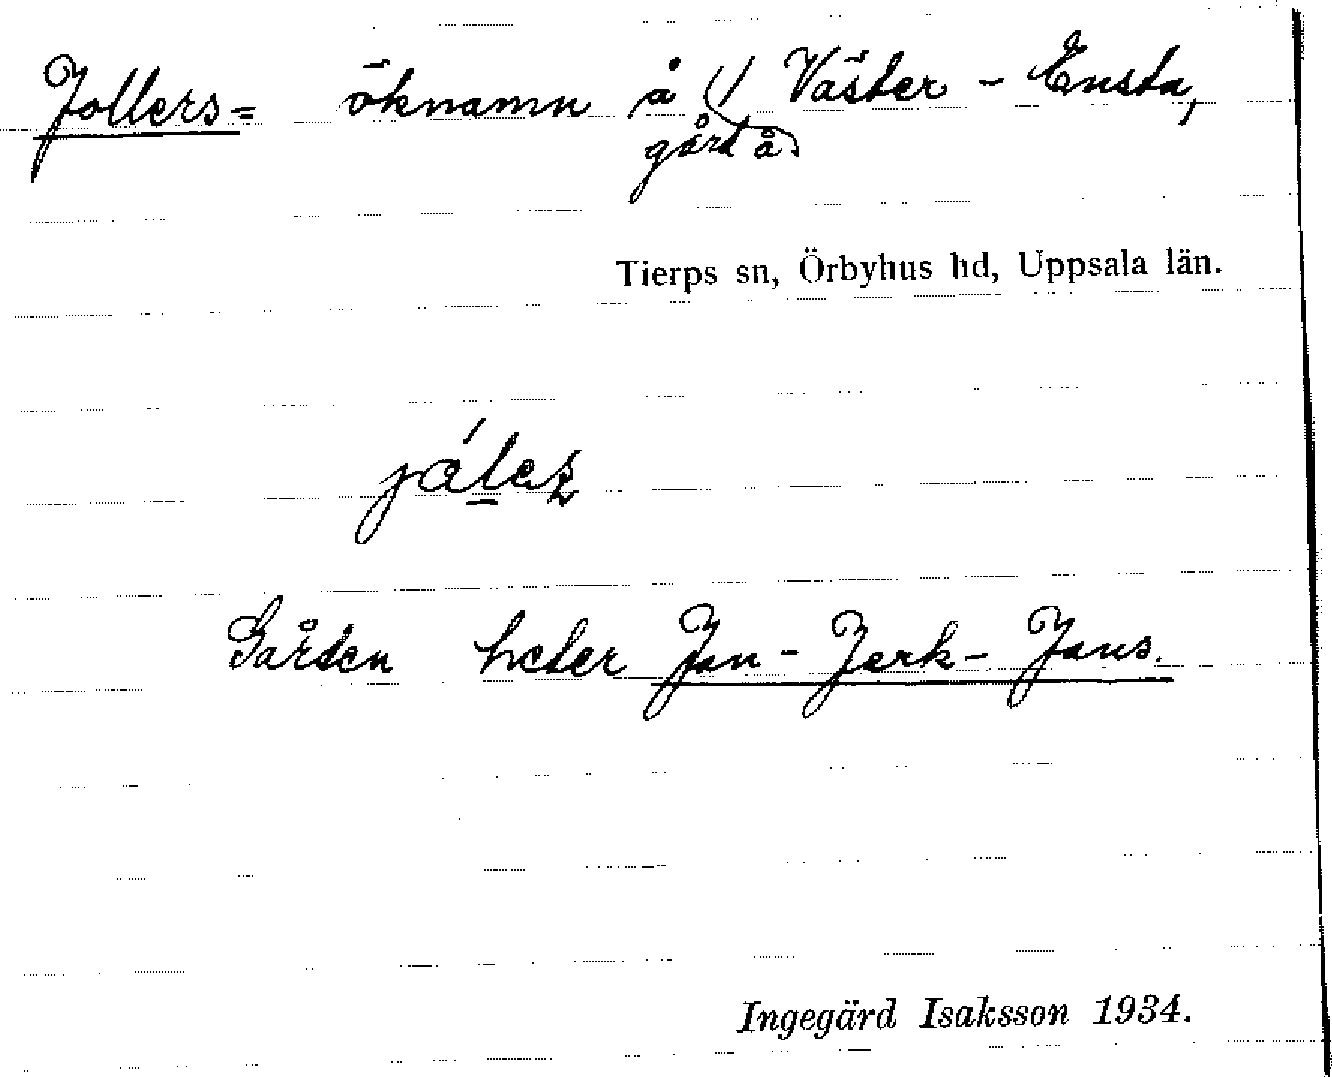 Jollers= öknamn å // Väster-Ensta,
gård å
Tierps sn, Örbyhus hd, Uppsala län.
Gården heter Jan-Jerk-Jans.
Ingegärd Isaksson 1934.